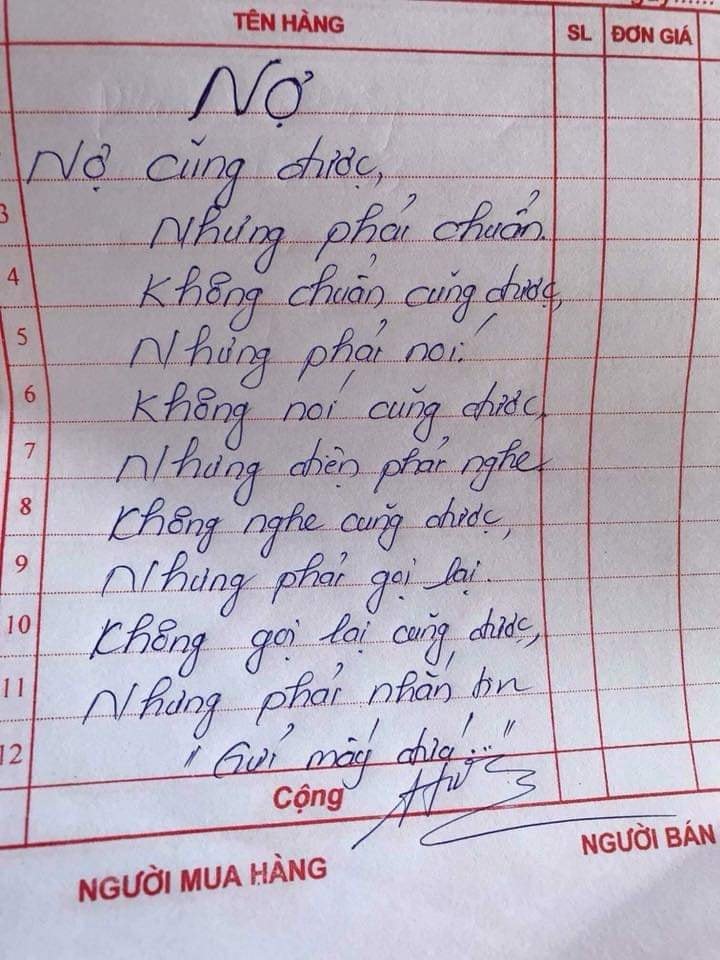 TÊN HÀNG SL ĐƠN GIÁ
Nợ
Nợ cũng được,
3 Nhưng phải chuẩn.
4 Không chuẩn cũng được,
5 Nhưng phải nói.
6 Không nói cũng được,
7 Nhưng điện phải nghe
8 Không nghe cũng được,
9 Nhưng phải gọi lại.
10 Không gọi lại cũng được,
11 Nhưng phải nhắn tin
12 "Gửi mấy địa..."
Cộng
NGƯỜI MUA HÀNG NGƯỜI BÁN